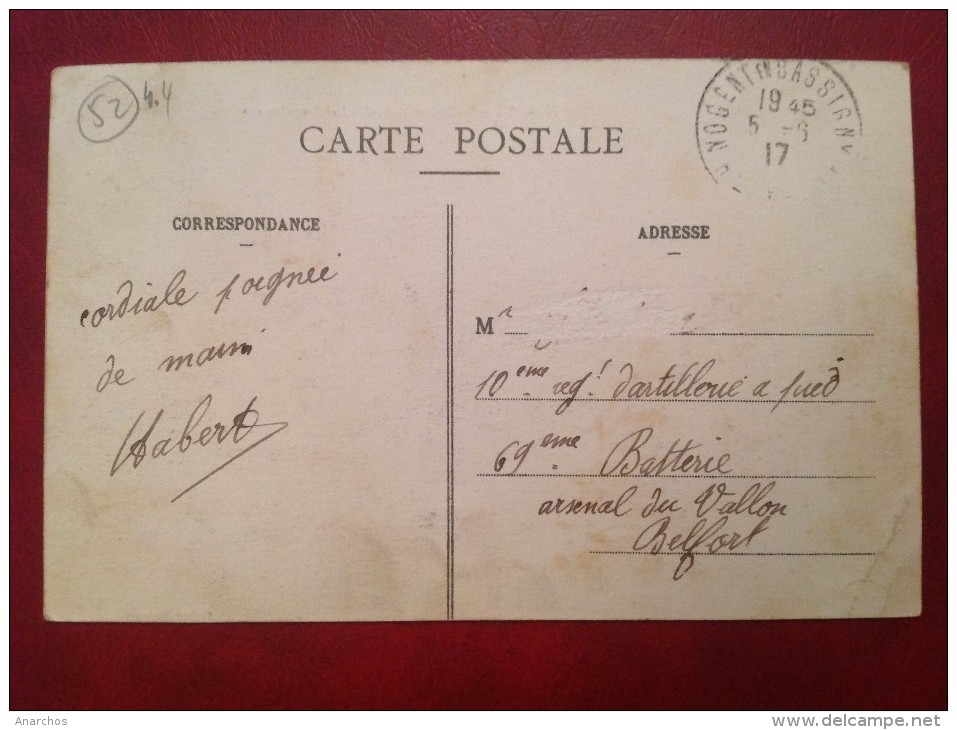 52
4.4
NOGENT EN BASSIGNY
19 45
5 -6
17
CARTE POSTALE
CORRESPONDANCE
cordiale poignée
de main
Habert
ADRESSE
M
10eme regt d'artillerie a pied
69eme Batterie
arsenal du Vallon
Belfort
Anarchos
www.delcampe.net